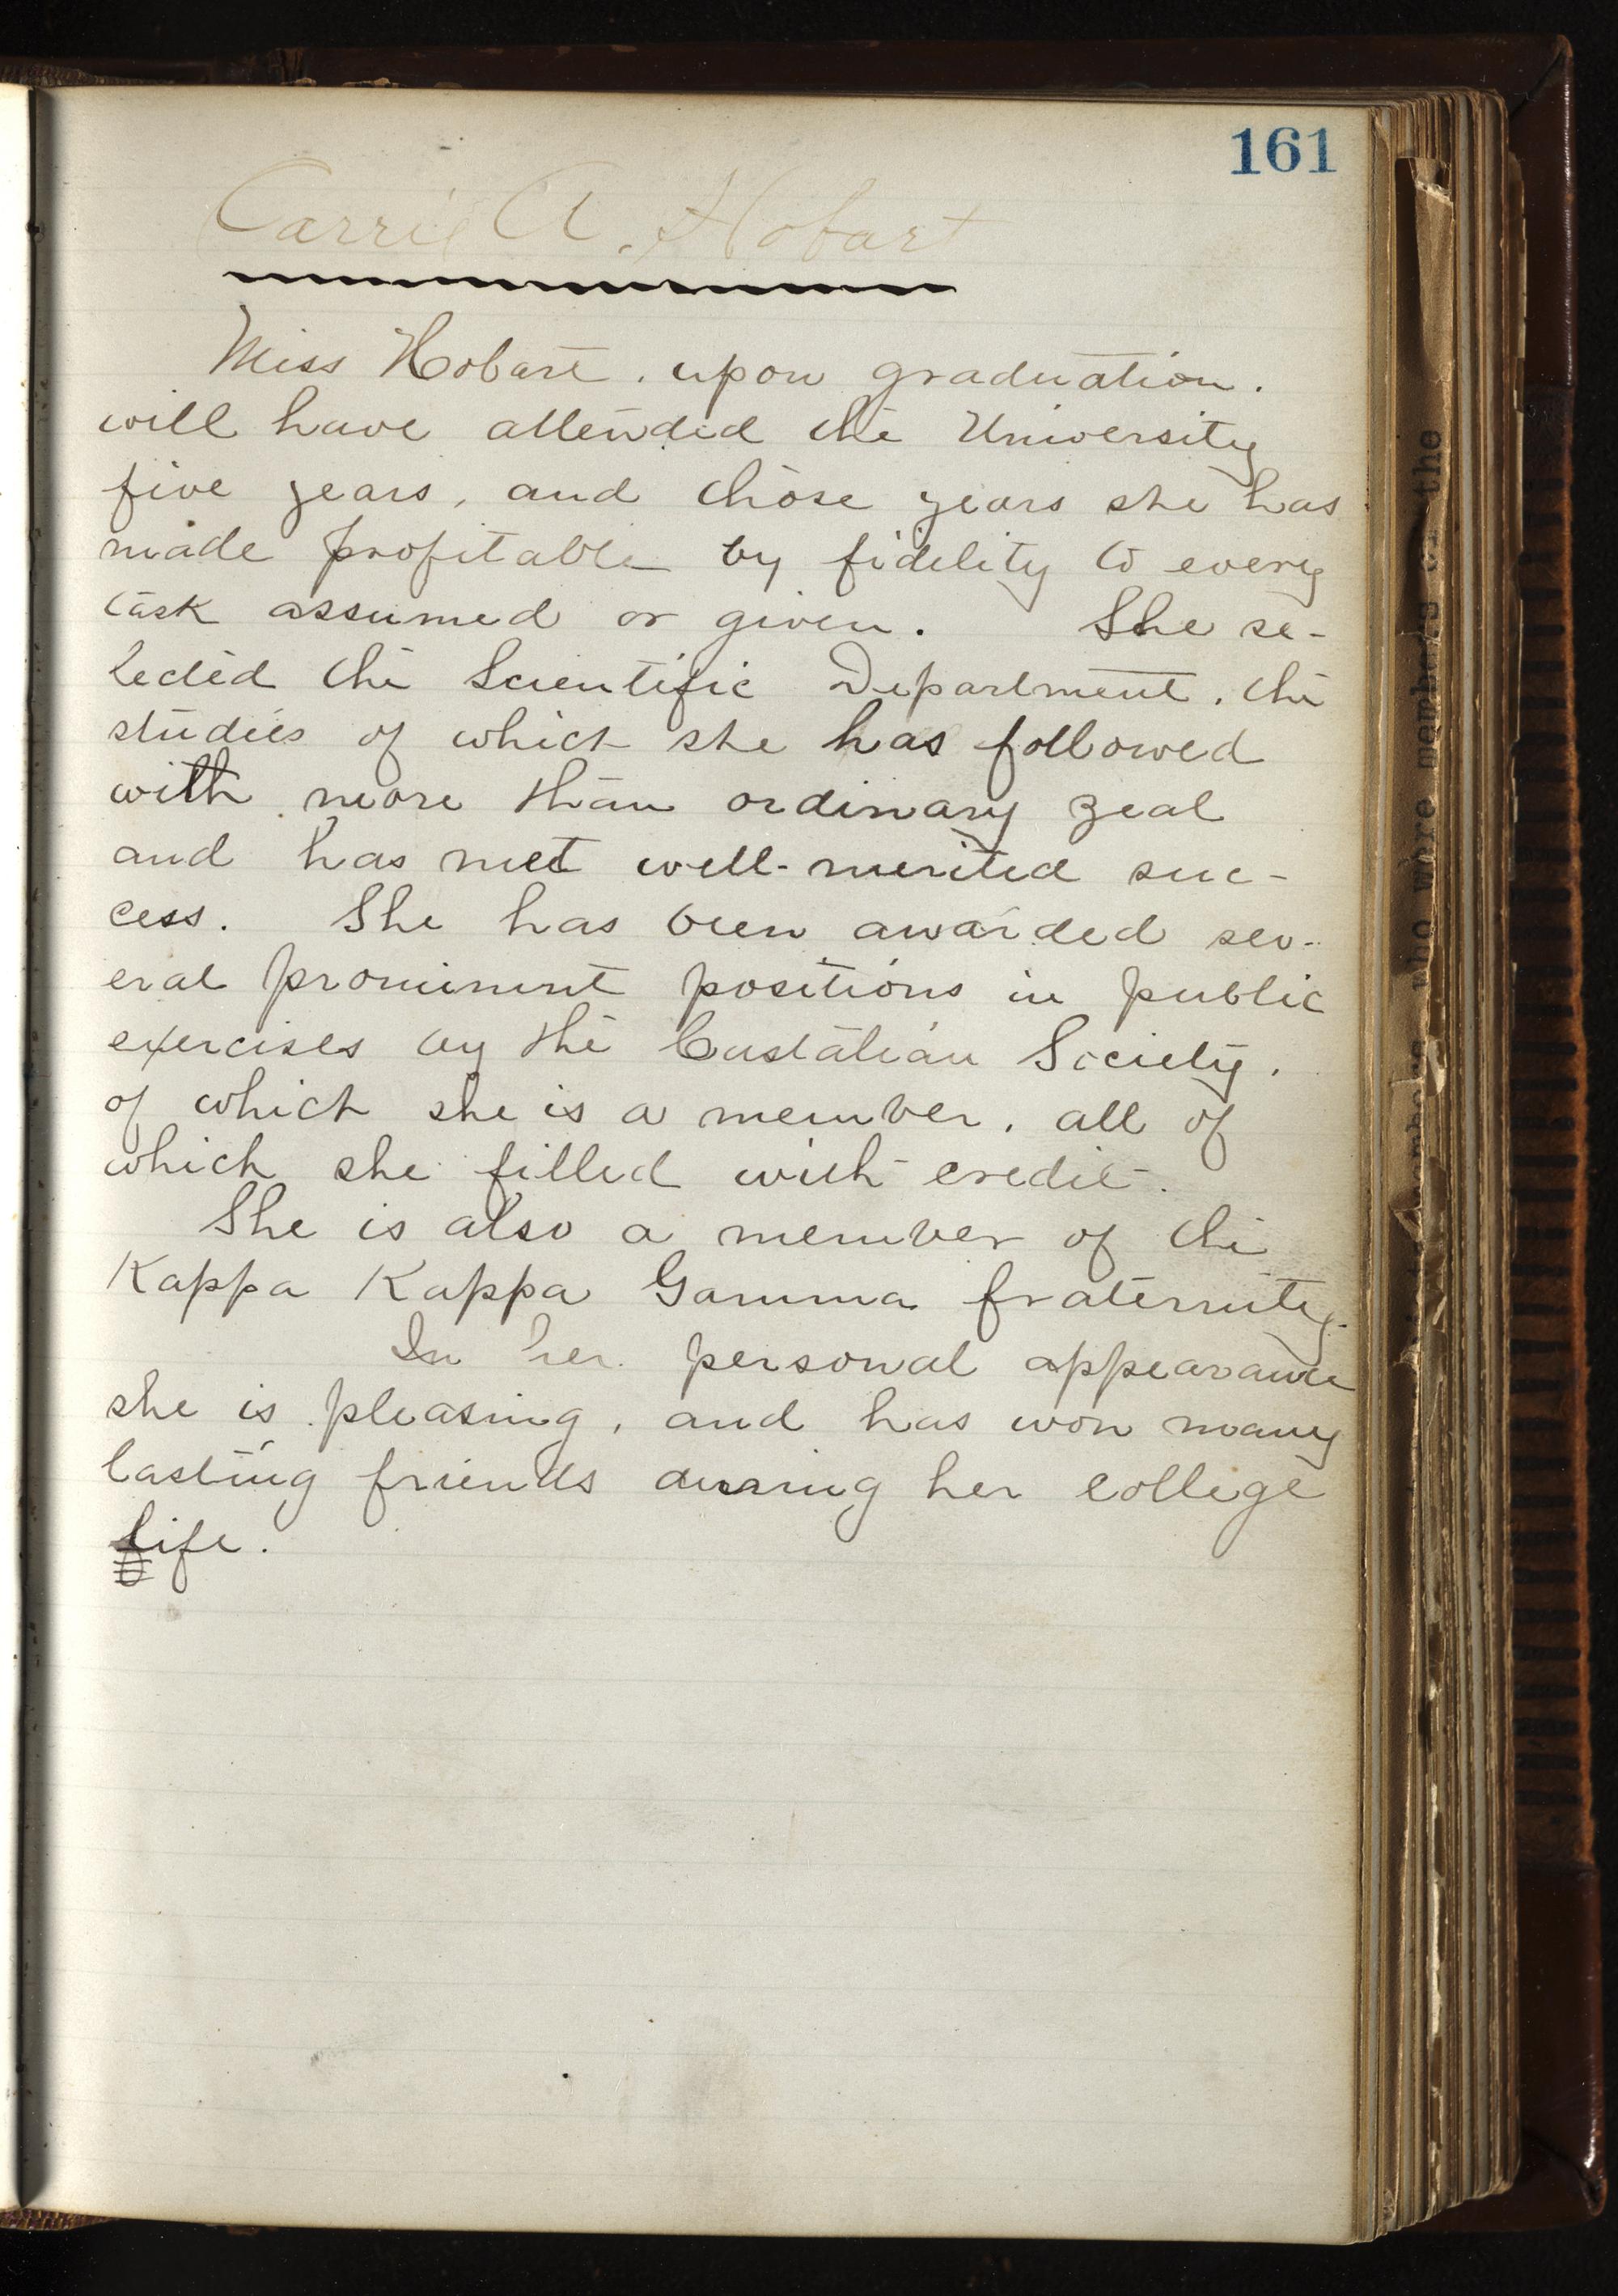 161
Carrie A. Hobart
Miss Hobart, upon graduation,
will have attended the University
five years, and those years she has
made profitable by fidelity to every
task assumed or given. She se-
lected the Scientific Department, the
studies of which she has followed
with more than ordinary zeal
and has met well-merited suc-
cess. She has been awarded sev-
eral prominent positions in public
exercises by the Castalian Society,
of which she is a member, all of
which she filled with credit.
She is also a member of the
Kappa Kappa Gamma fraternity.
In her personal appearance
she is pleasing, and has won many
lasting friends during her college
life.
who were members of the